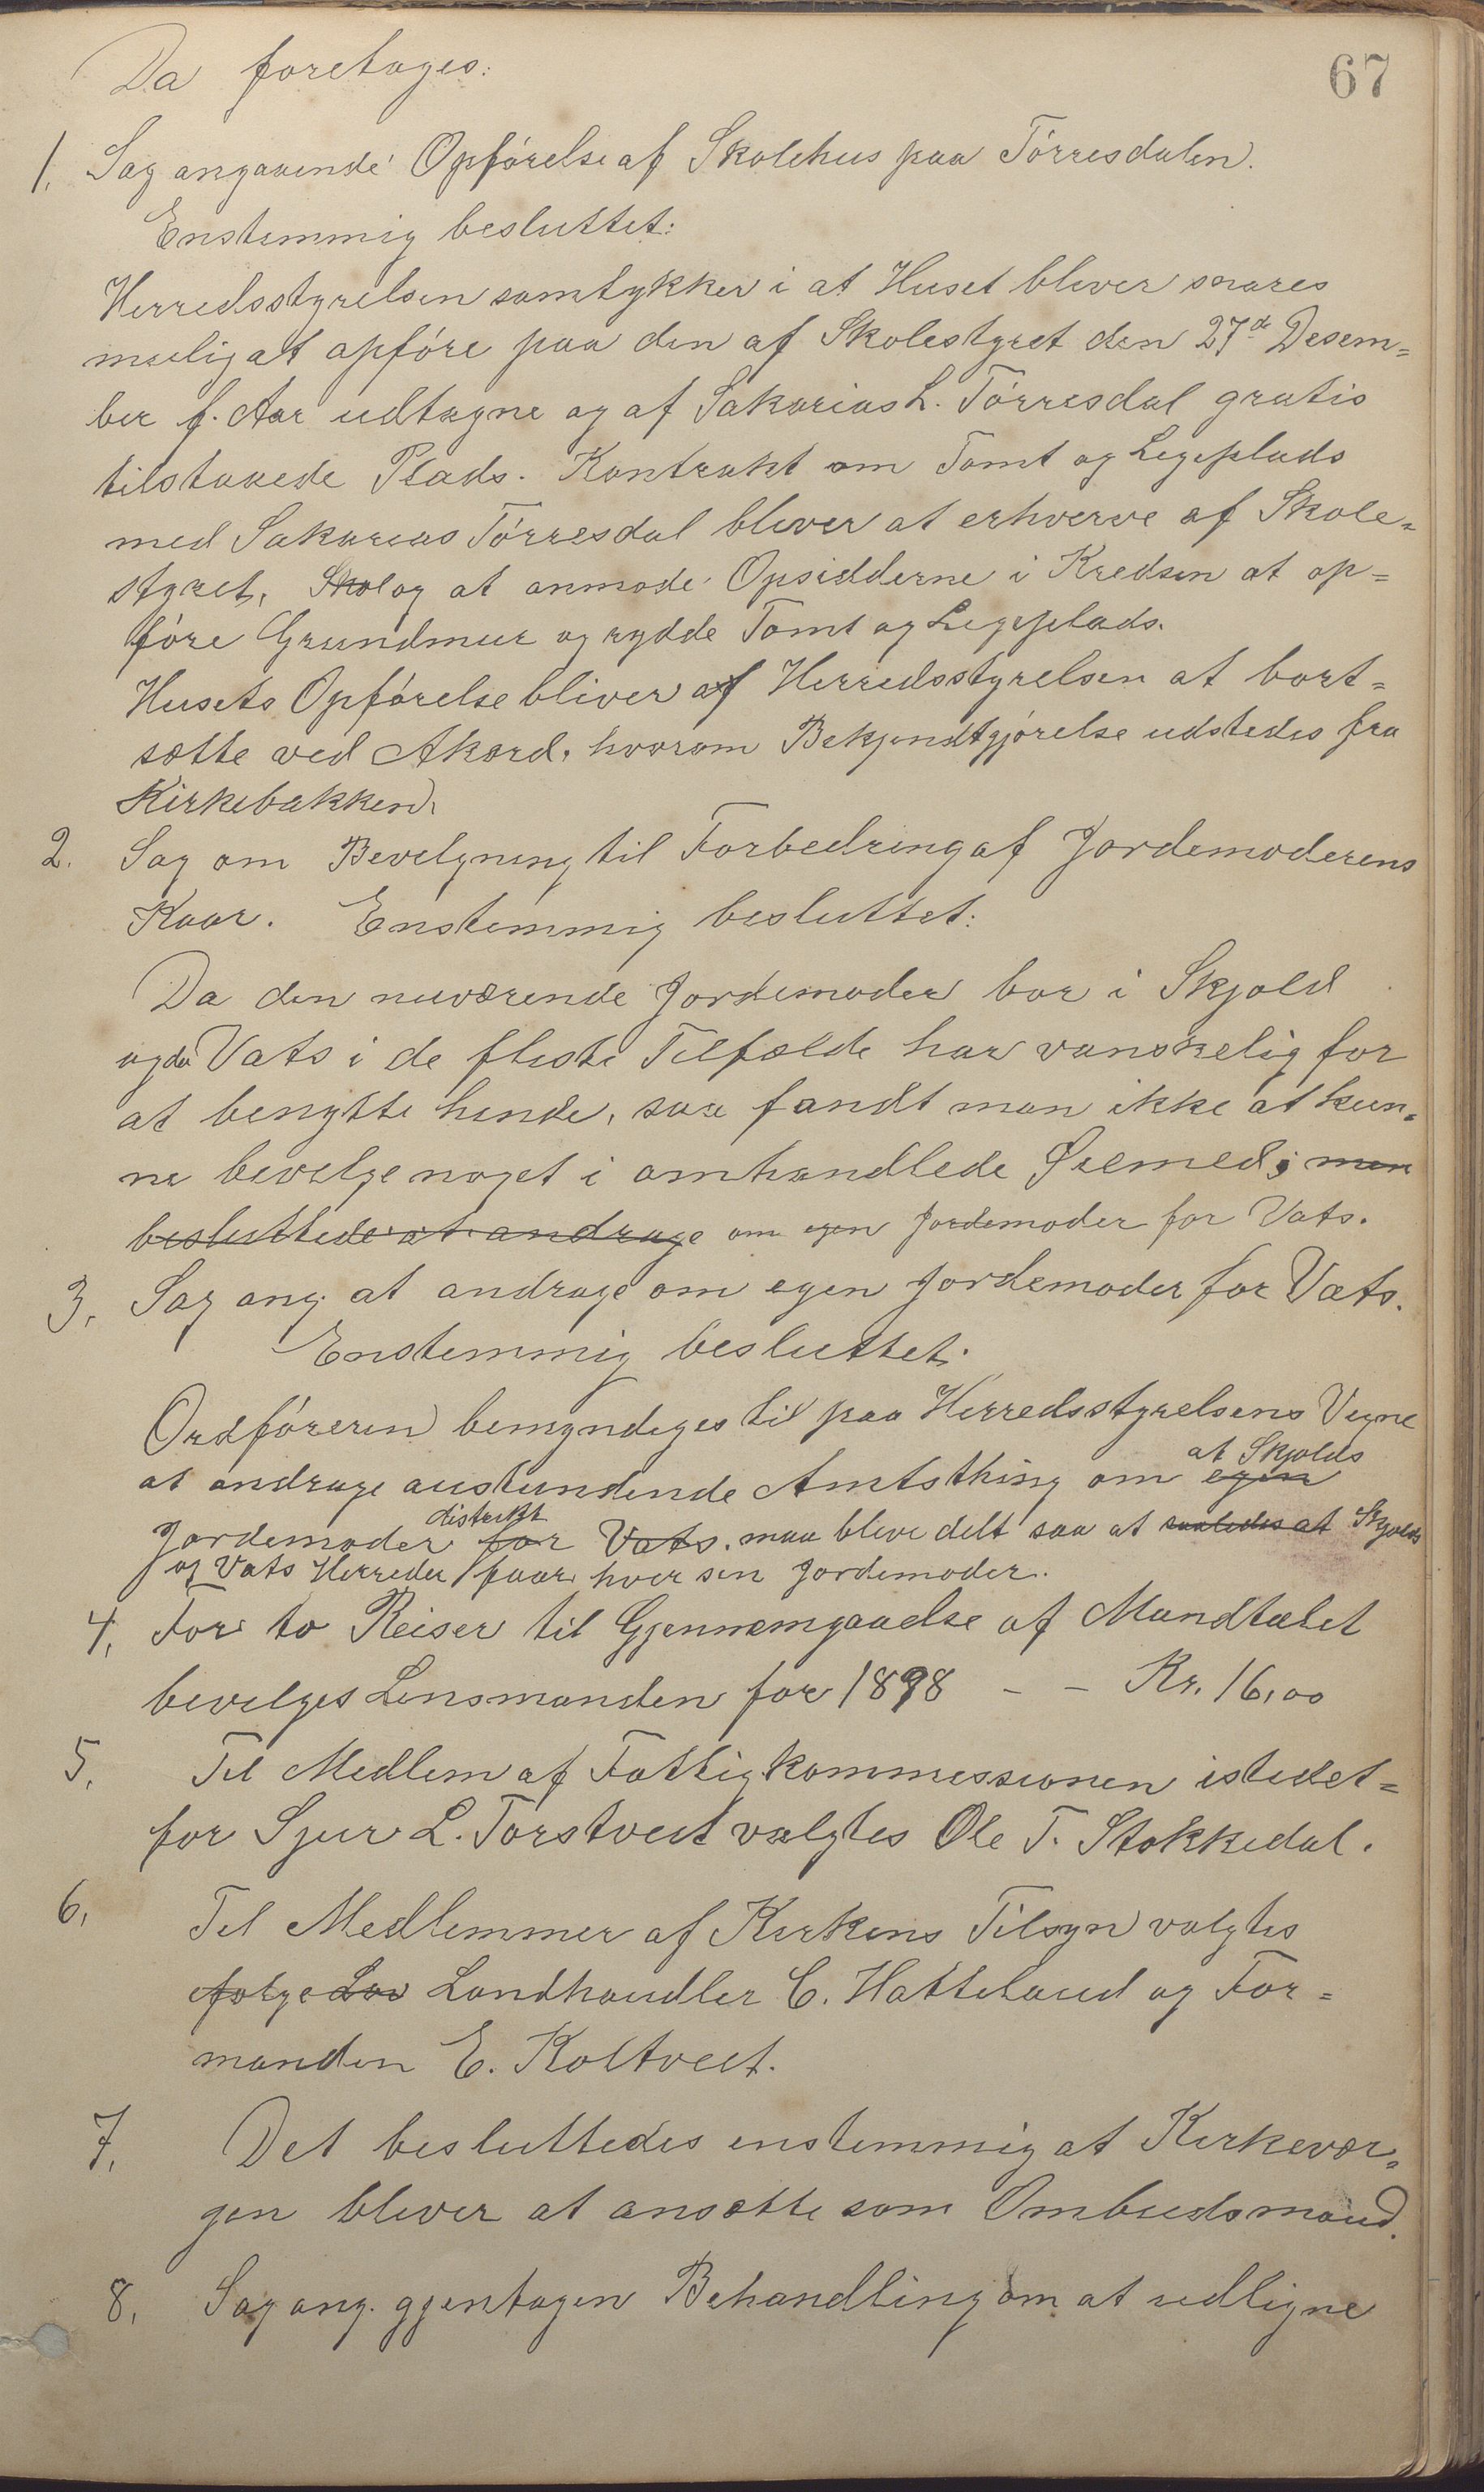 67
Da foretoges:
1. Sag angaaende Opførelse af Skolehus paa Tørresdalen.
Enstemmig besluttet:
Herredsstyrelsen samtykker i at Huset bliver snares
mulig at opføre paa den af Skolestyret den 27de Desem=
ber f. Aar udtagne og af Sakarias L. Tørresdal gratis
tilstaaede Plads. Kontrakt om Tomt og Legeplads
med Sakarias Tørresdal bliver at erhverve af Skole=
styret, Skol og at anmode Opsidderne i Kredsen at op=
føre Grundmur og rydde Tomt og Legeplads.
Husets Opførelse bliver af Herredsstyrelsen at bort=
sætte ved Akord, hvorom Bekjendtgjørelse udstedes fra
Kirkebakken.
2. Sag om Bevilgning til Forbedring af Jordemoderens
Kaar. Enstemmig besluttet:
Da den nuværende Jordemoder bor i Skjold
og da Vats i de fleste Tilfælde har vanskelig for
at benytte hende, saa fandt man ikke at kun=
ne bevilge noget i omhandlede Øiemed; men
besluttede at andrage om egen Jordemoder for Vats.
3. Sag ang. at andrage om egen Jordemoder for Vats.
Enstemmig besluttet:
Ordføreren bemyndiges til paa Herredsstyrelsens Vegne
at Skjolds
at andrage anstundende Amtsthing om egen
distrikt
Jordemoder for Vats. maa blive delt saa at saaledes at Skjolds
og Vats Herreder faar hver sin Jordemoder.
4. For to Reiser til Gjennemgaaelse af Mandtalet
bevilges Lensmanden for 1898 – – Kr. 16,00
5. Til Medlem af Fattigkommissionen istedet=
for Sjur L. Torstveit valgtes Ole T. Stokkedal.
6. Til Medlemmer af Kirkens Tilsyn valgtes
ifølge Lov Landhandler C. Hatteland og For=
manden E. Koltveit.
7. Det besluttedes enstemmig at Kirkevær=
gen bliver at ansætte som Ombudsmand.
8. Sag ang. gjentagen Behandling om at udligne